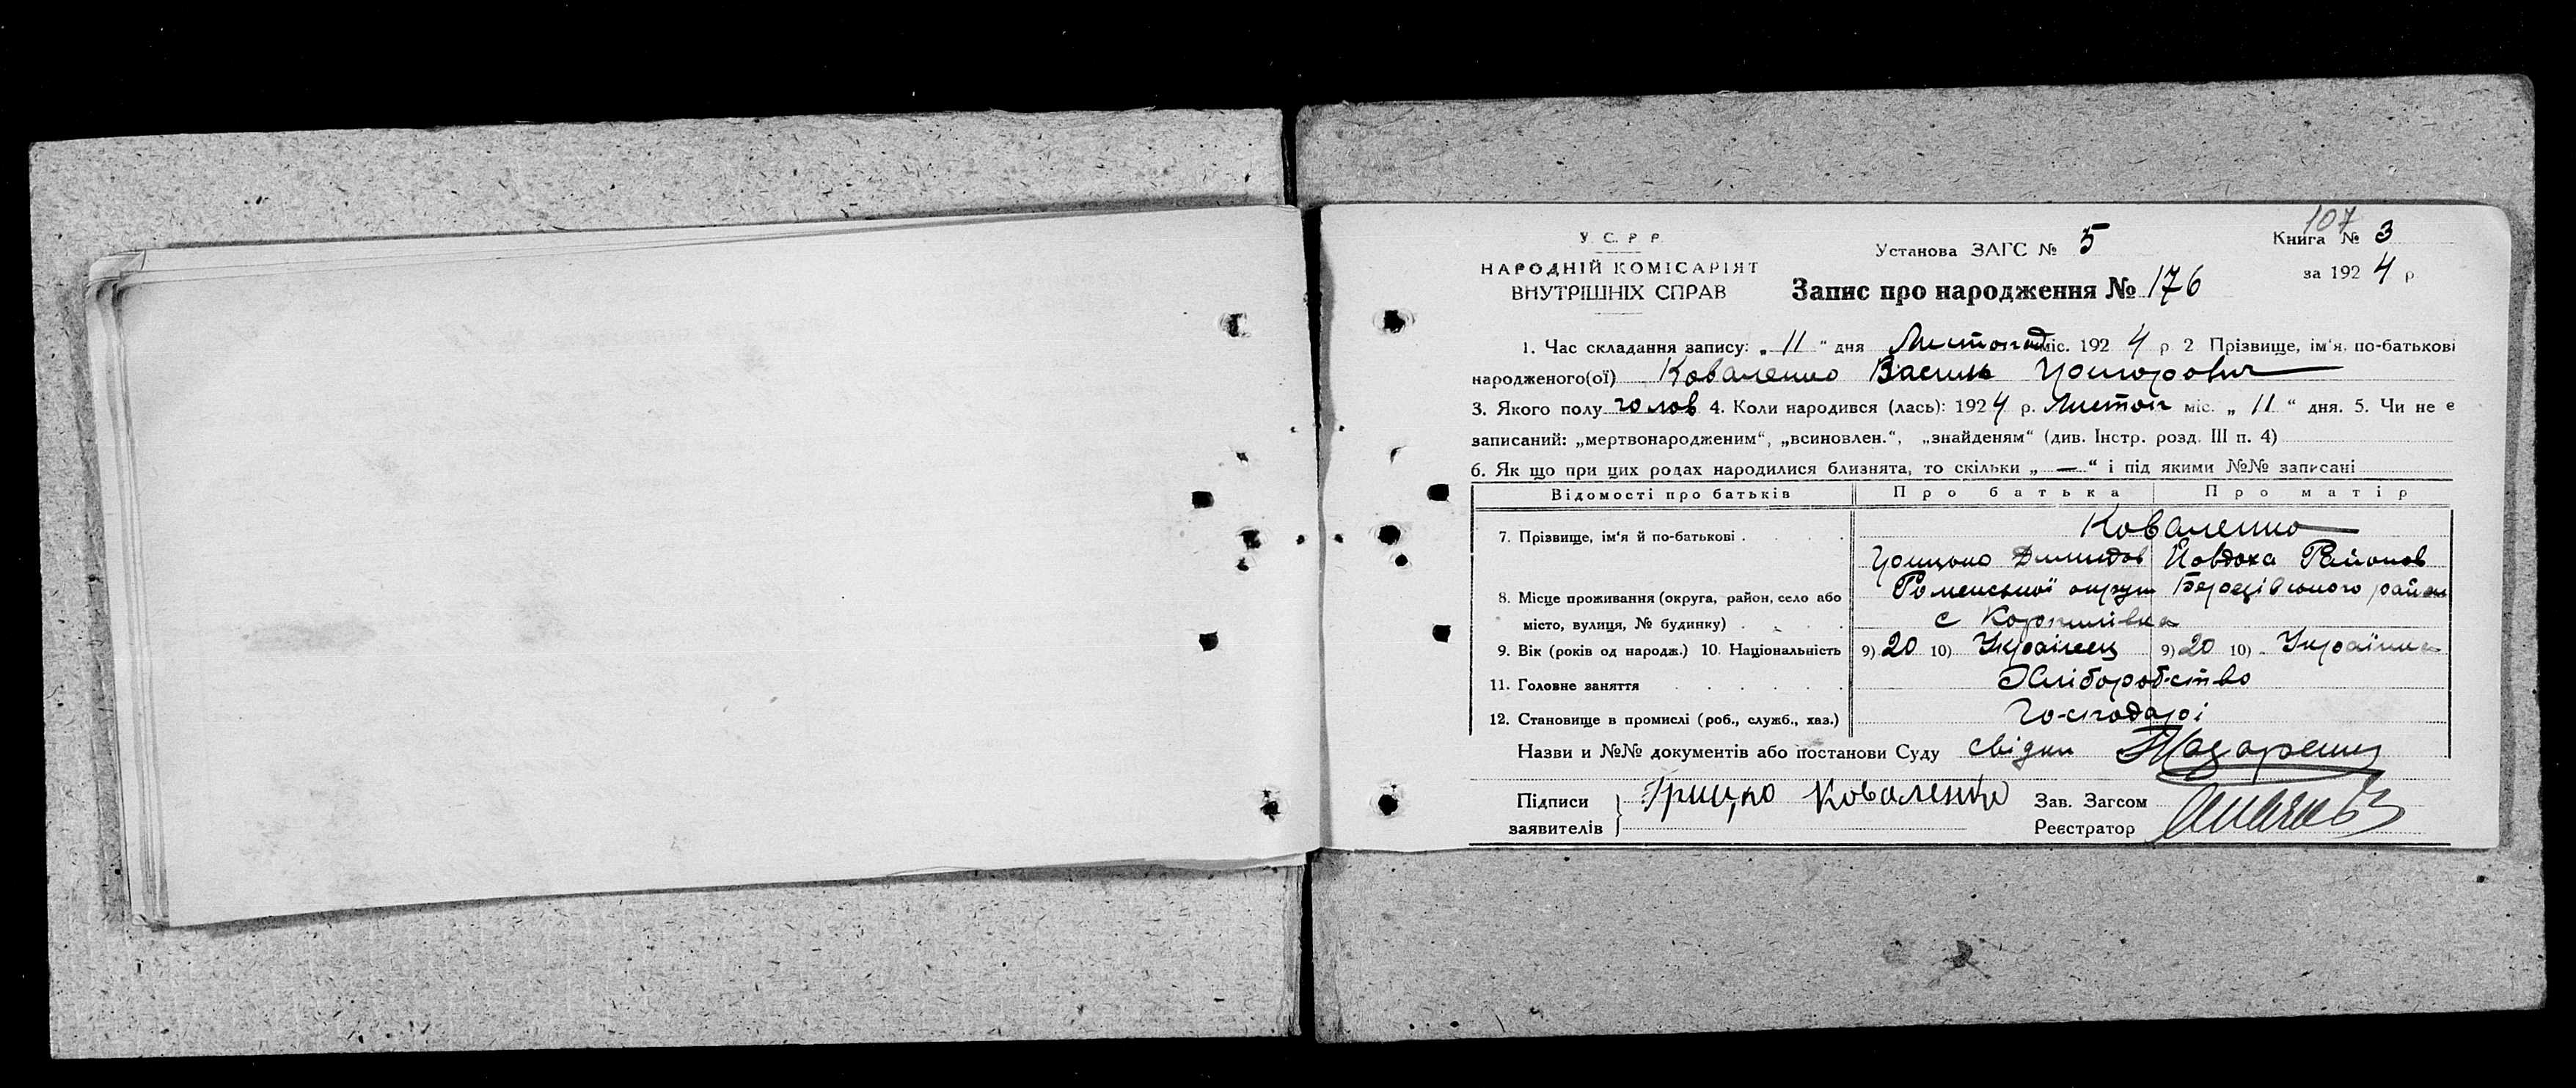 107
У. С. Р. Р.
НАРОДНІЙ КОМІСАРІЯТ
ВНУТРІШНІХ СПРАВ
Установа ЗАГС № 5
Книга № 3
за 1924 р
Запис про народження № 176
1. Час складання запису: „ 11 “ дня Листопад міс. 1924 р 2 Прізвище, ім‘я, по-батькові
народженого(ої) Коваленко Василь Григорович
3. Якого полу чолов 4. Коли народився (лась): 1924 р. Листоп міс. „ 11 “ дня. 5. Чи не є
записаний: „мертвонародженим“, „всиновлен.“, „знайденям“ (див. Інстр. розд. III п. 4)
6. Як що при цих родах народилися близнята, то скільки „ — “ і під якими №№ записані
Відомості про батьків Про батька Про матір
7. Прізвище, ім‘я й по-батькові Коваленко
Грицько Демидов Йовдоха
8. Місце проживання (округа, район, село або Роменської округи району
місто, вулиця, № будинку) с
9. Вік (років од народж.) 10. Національність 9) 20 10) Українец 9) 20 10) Українка
11. Головне заняття Хліборобство
12. Становище в промислі (роб., служб., хаз.) Господарі
Назви и №№ документів або постанови Суду свідки
Підписи
заявителів
Грицко Коваленко
Зав. Загсом
Реєстратор